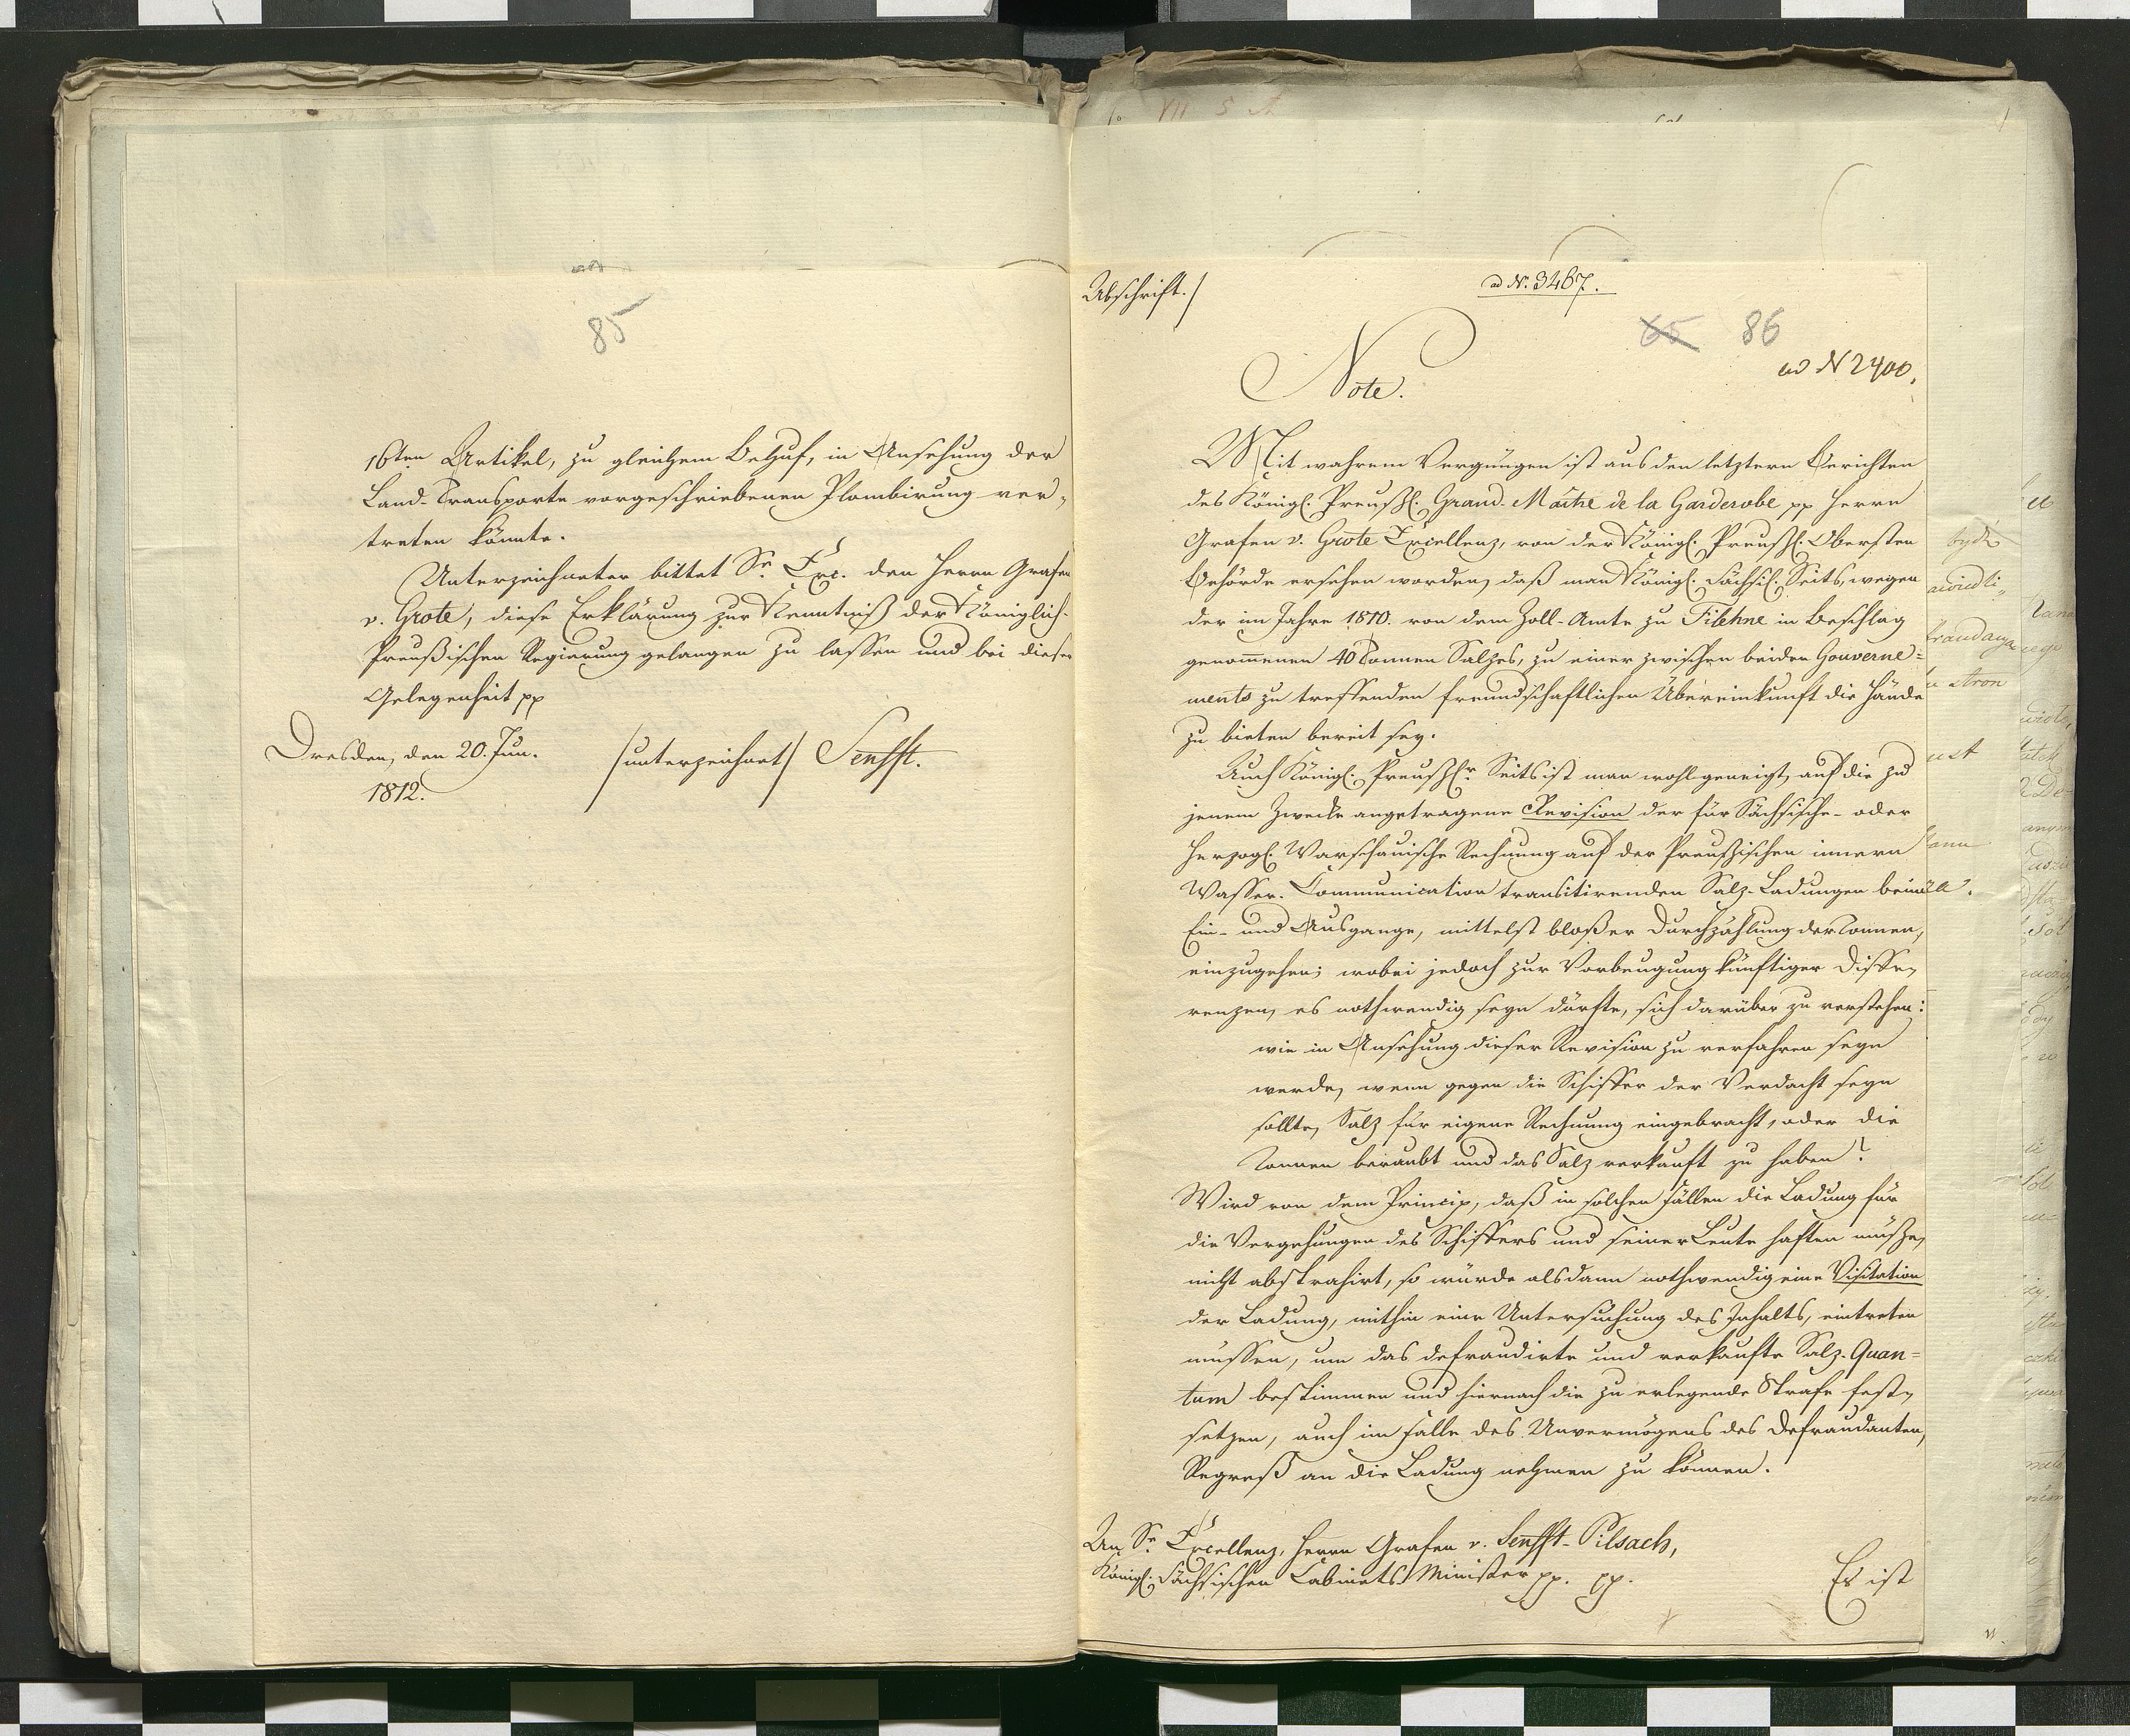 85
16ten Artikel, zu gleichem Behuf, in Ansehung der
Land-Transporte vorgeschriebenen Plombirung ver-
treten könnte.
Unterzeichneter bittet Sr. Exc. den Herrn Grafen
v. Grote, diese Erklärung zur Kenntniß der Königlich-
Preußischen Regierung gelangen zu lassen und bei dieser
Gelegenheit pp
Dresden, den 20. Jun.
1812.
/unterzeichnet/ Senfft.
Abschrift./
ad N. 3467.
65 86
ad N 2400.
Note.
Mit wahrem Vergnügen ist aus den letztern Berichten
des Königl. Preußl. Grand-Maitre de la Garderobe pp Herrn
Grafen v. Grote Excellenz, von der Königl. Preußl. Obersten
Behörde ersehen worden, daß man Königl. Sächsil. Seits, wegen
der im Jahre 1810. von dem Zoll-Amte zu Filehne in Beschlag
genommenen 40 Tonnen Salzes, zu einer zwischen beiden Gouverne=
ments zu treffenden freundschaftlichen Übereinkunft die Hände
zu bieten bereit sey.
Auch Königl. Preußl.r Seits ist man wohl geneigt, auf die zu
jenem Zwecke angetragene Revision der für Sächsische- oder
Herzogl. Warschauische Rechnung auf der Preußischen innern
Wasser-Communication transitirenden Salz-Ladungen beim
Ein- und Ausgange, mittelst bloßer Durchzählung der Tonnen,
einzugehen; wobei jedoch zur Vorbeugung künftiger Diffe-
renzen, es nothwendig seyn dürfte, sich darüber zu verstehen:
wie in Ansehung dieser Revision zu verfahren seyn
werde, wenn gegen die Schiffer der Verdacht seyn
sollte, Salz für eigene Rechnung eingebracht, oder die
Tonnen beraubt und das Salz verkauft zu haben?
Wird von dem Princip, daß in solchen Fällen die Ladung für
die Vergehungen des Schiffers und seiner Leute haften müße,
nicht abstrahirt, so würde alsdann nothwendig eine Visitation
der Ladung, mithin eine Untersuchung des Inhalts, eintreten
müssen, um das defraudirte und verkaufte Salz-Quan=
tum bestimmen und hiernach die zu erlegende Strafe fest-
setzen, auch im Falle des Unvermögens des Defraudanten,
Regreß an die Ladung nehmen zu können.
An Sr. Excellenz, Herrn Grafen v. Senfft-Pilsach,
Königl. Sächsischen Cabinets Minister pp. pp.
Es ist